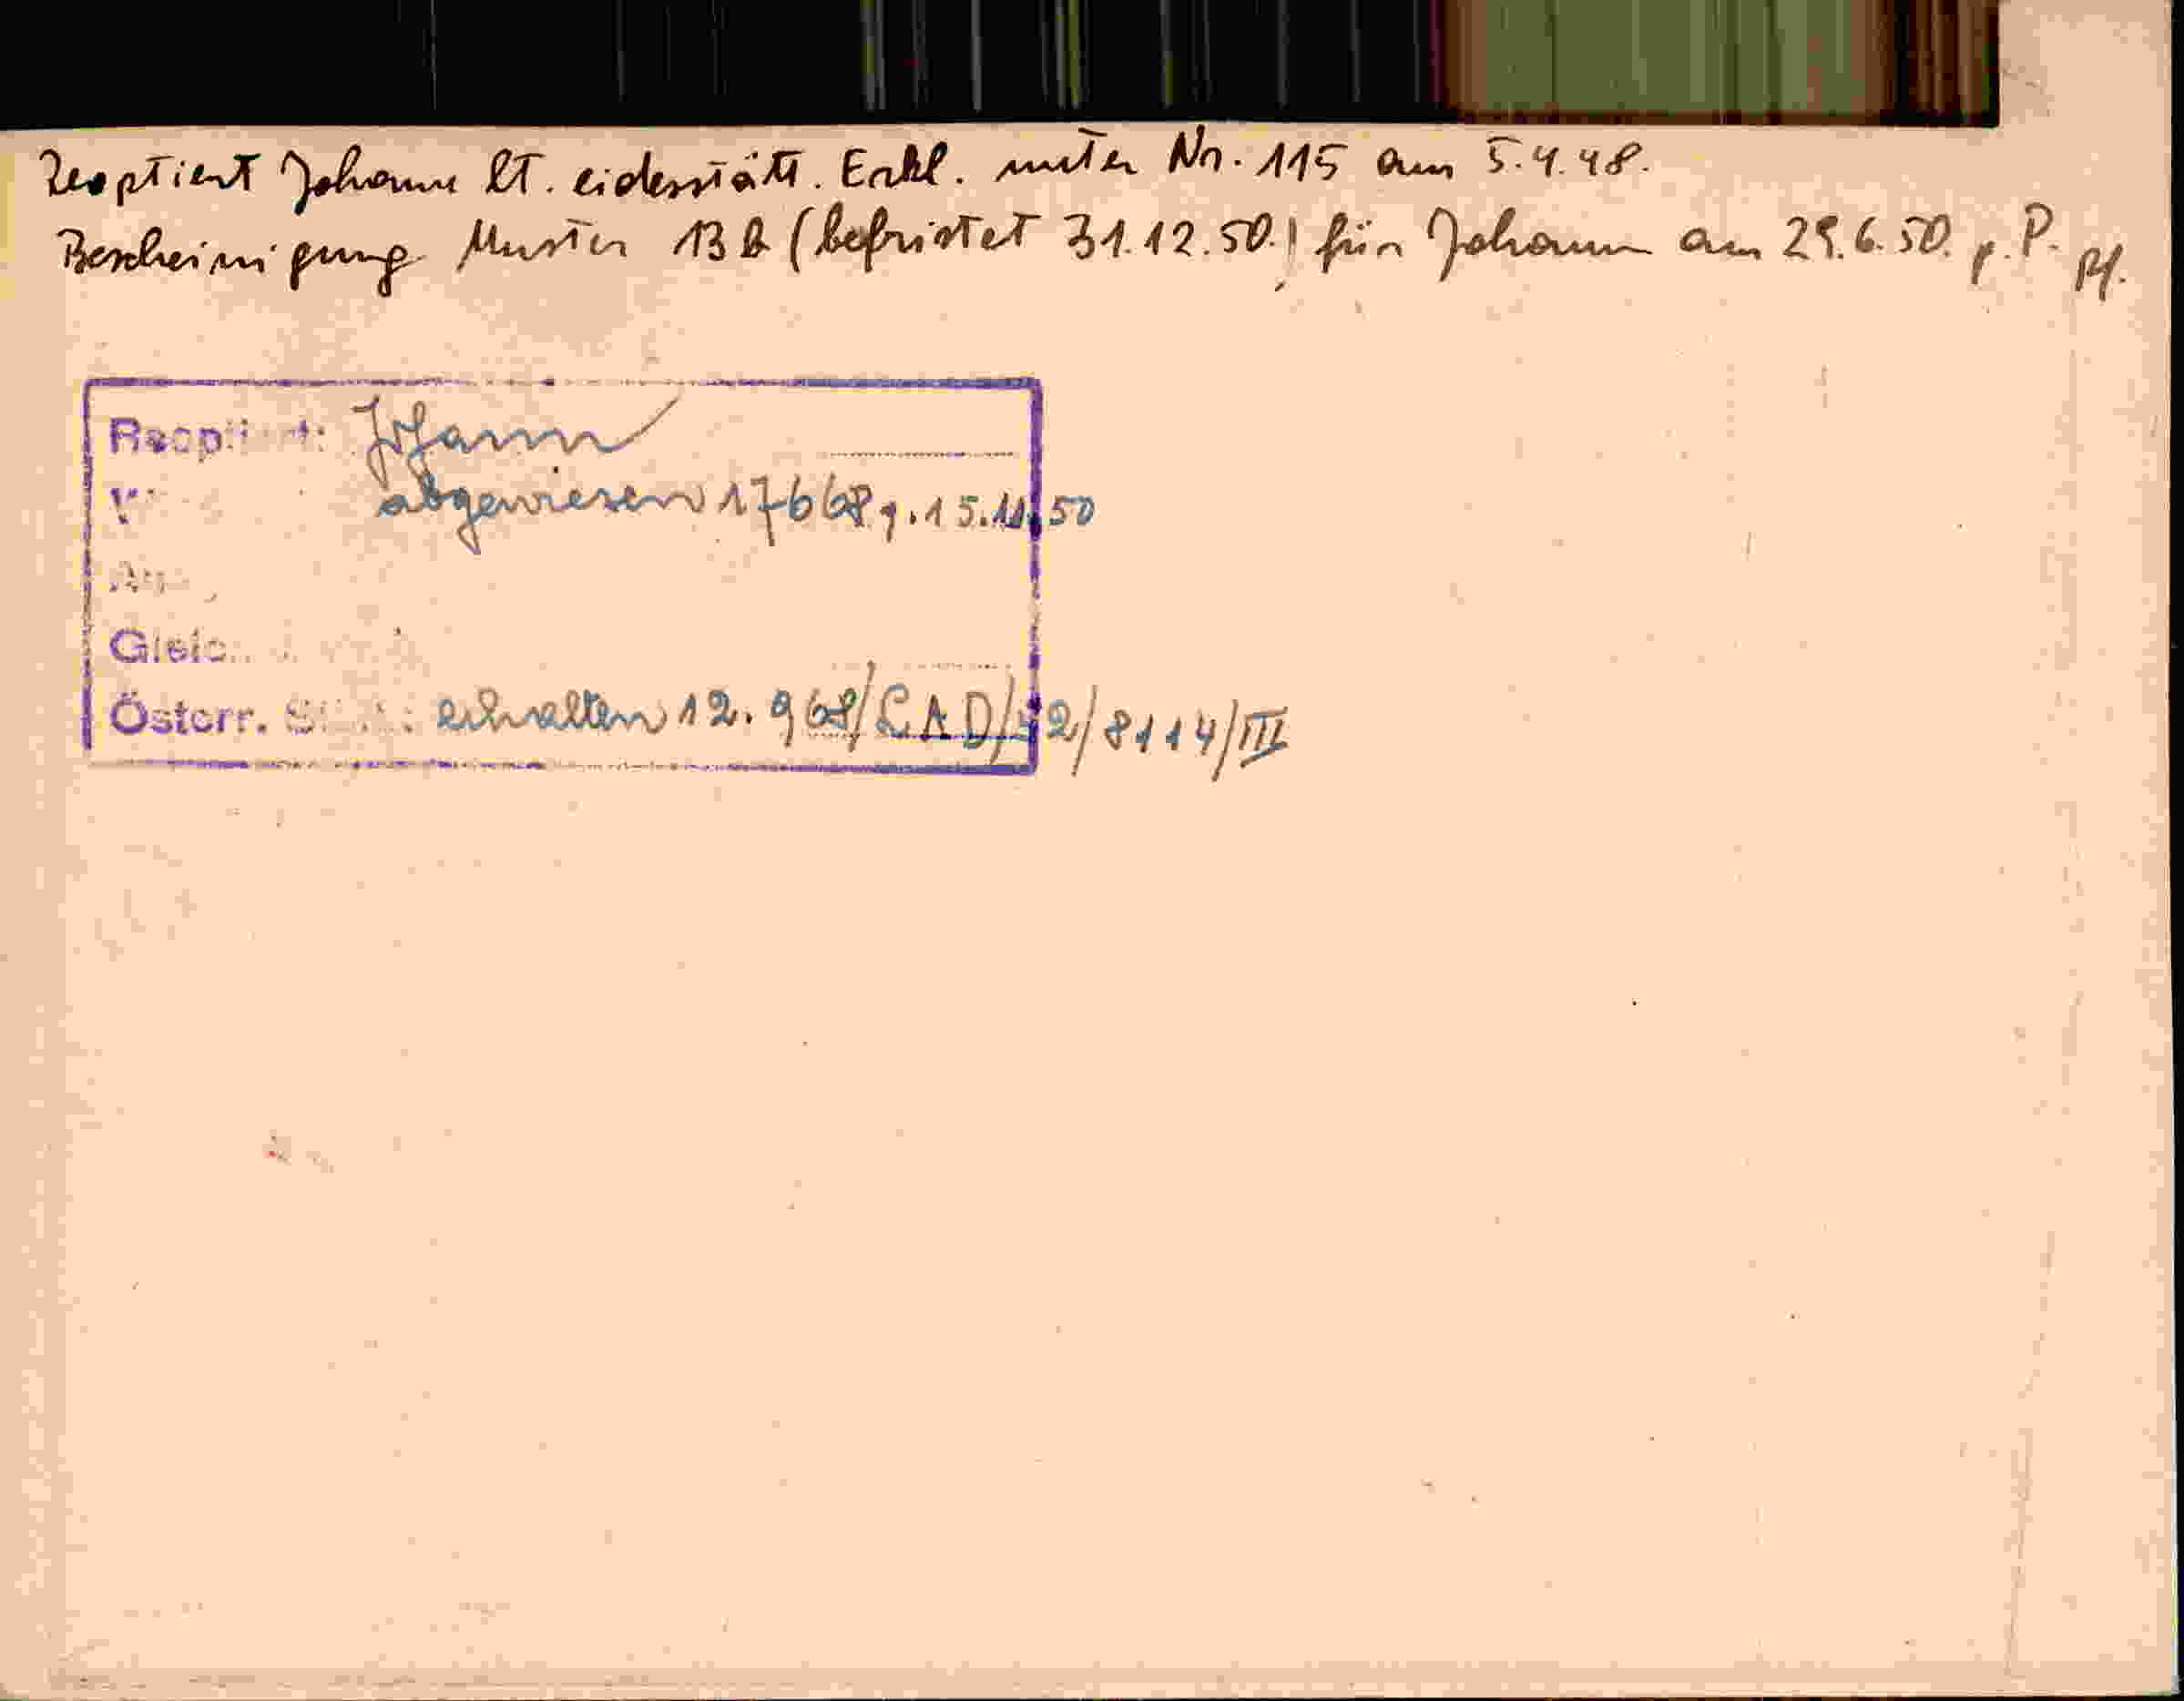 Reoptiert Johann lt. eidesstätt. Erkl. unter Nr. 115 am 5.4.48.
Bescheinigung Muster 13 b (befristet 31.12.50.) für Johann am 29.6.50. p. P.
Reoptiert: Johann
abgewiesen 17668 15.11.50
Österr. erhalten 12.968/LAD/42/8114/III